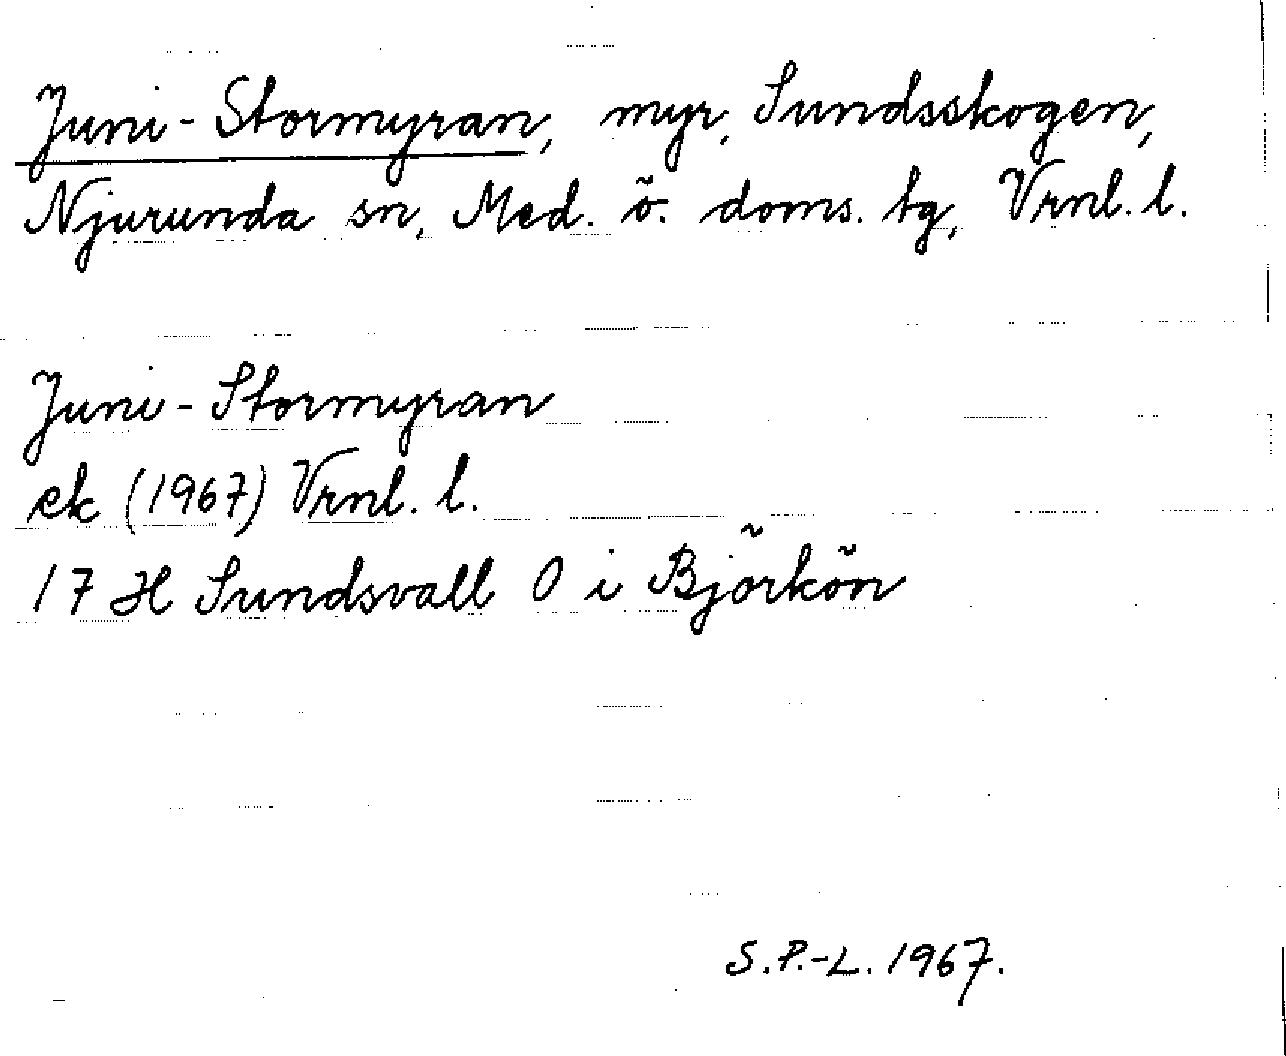 Juni-Stormyran, myr, Sundsskogen,
Njurunda sn, Med. ö. doms. tg, Vrnl. l.
Juni-Stormyran
ek (1967) Vrnl. l.
17 H Sundsvall O i Björkön
S.P.-L. 1967.